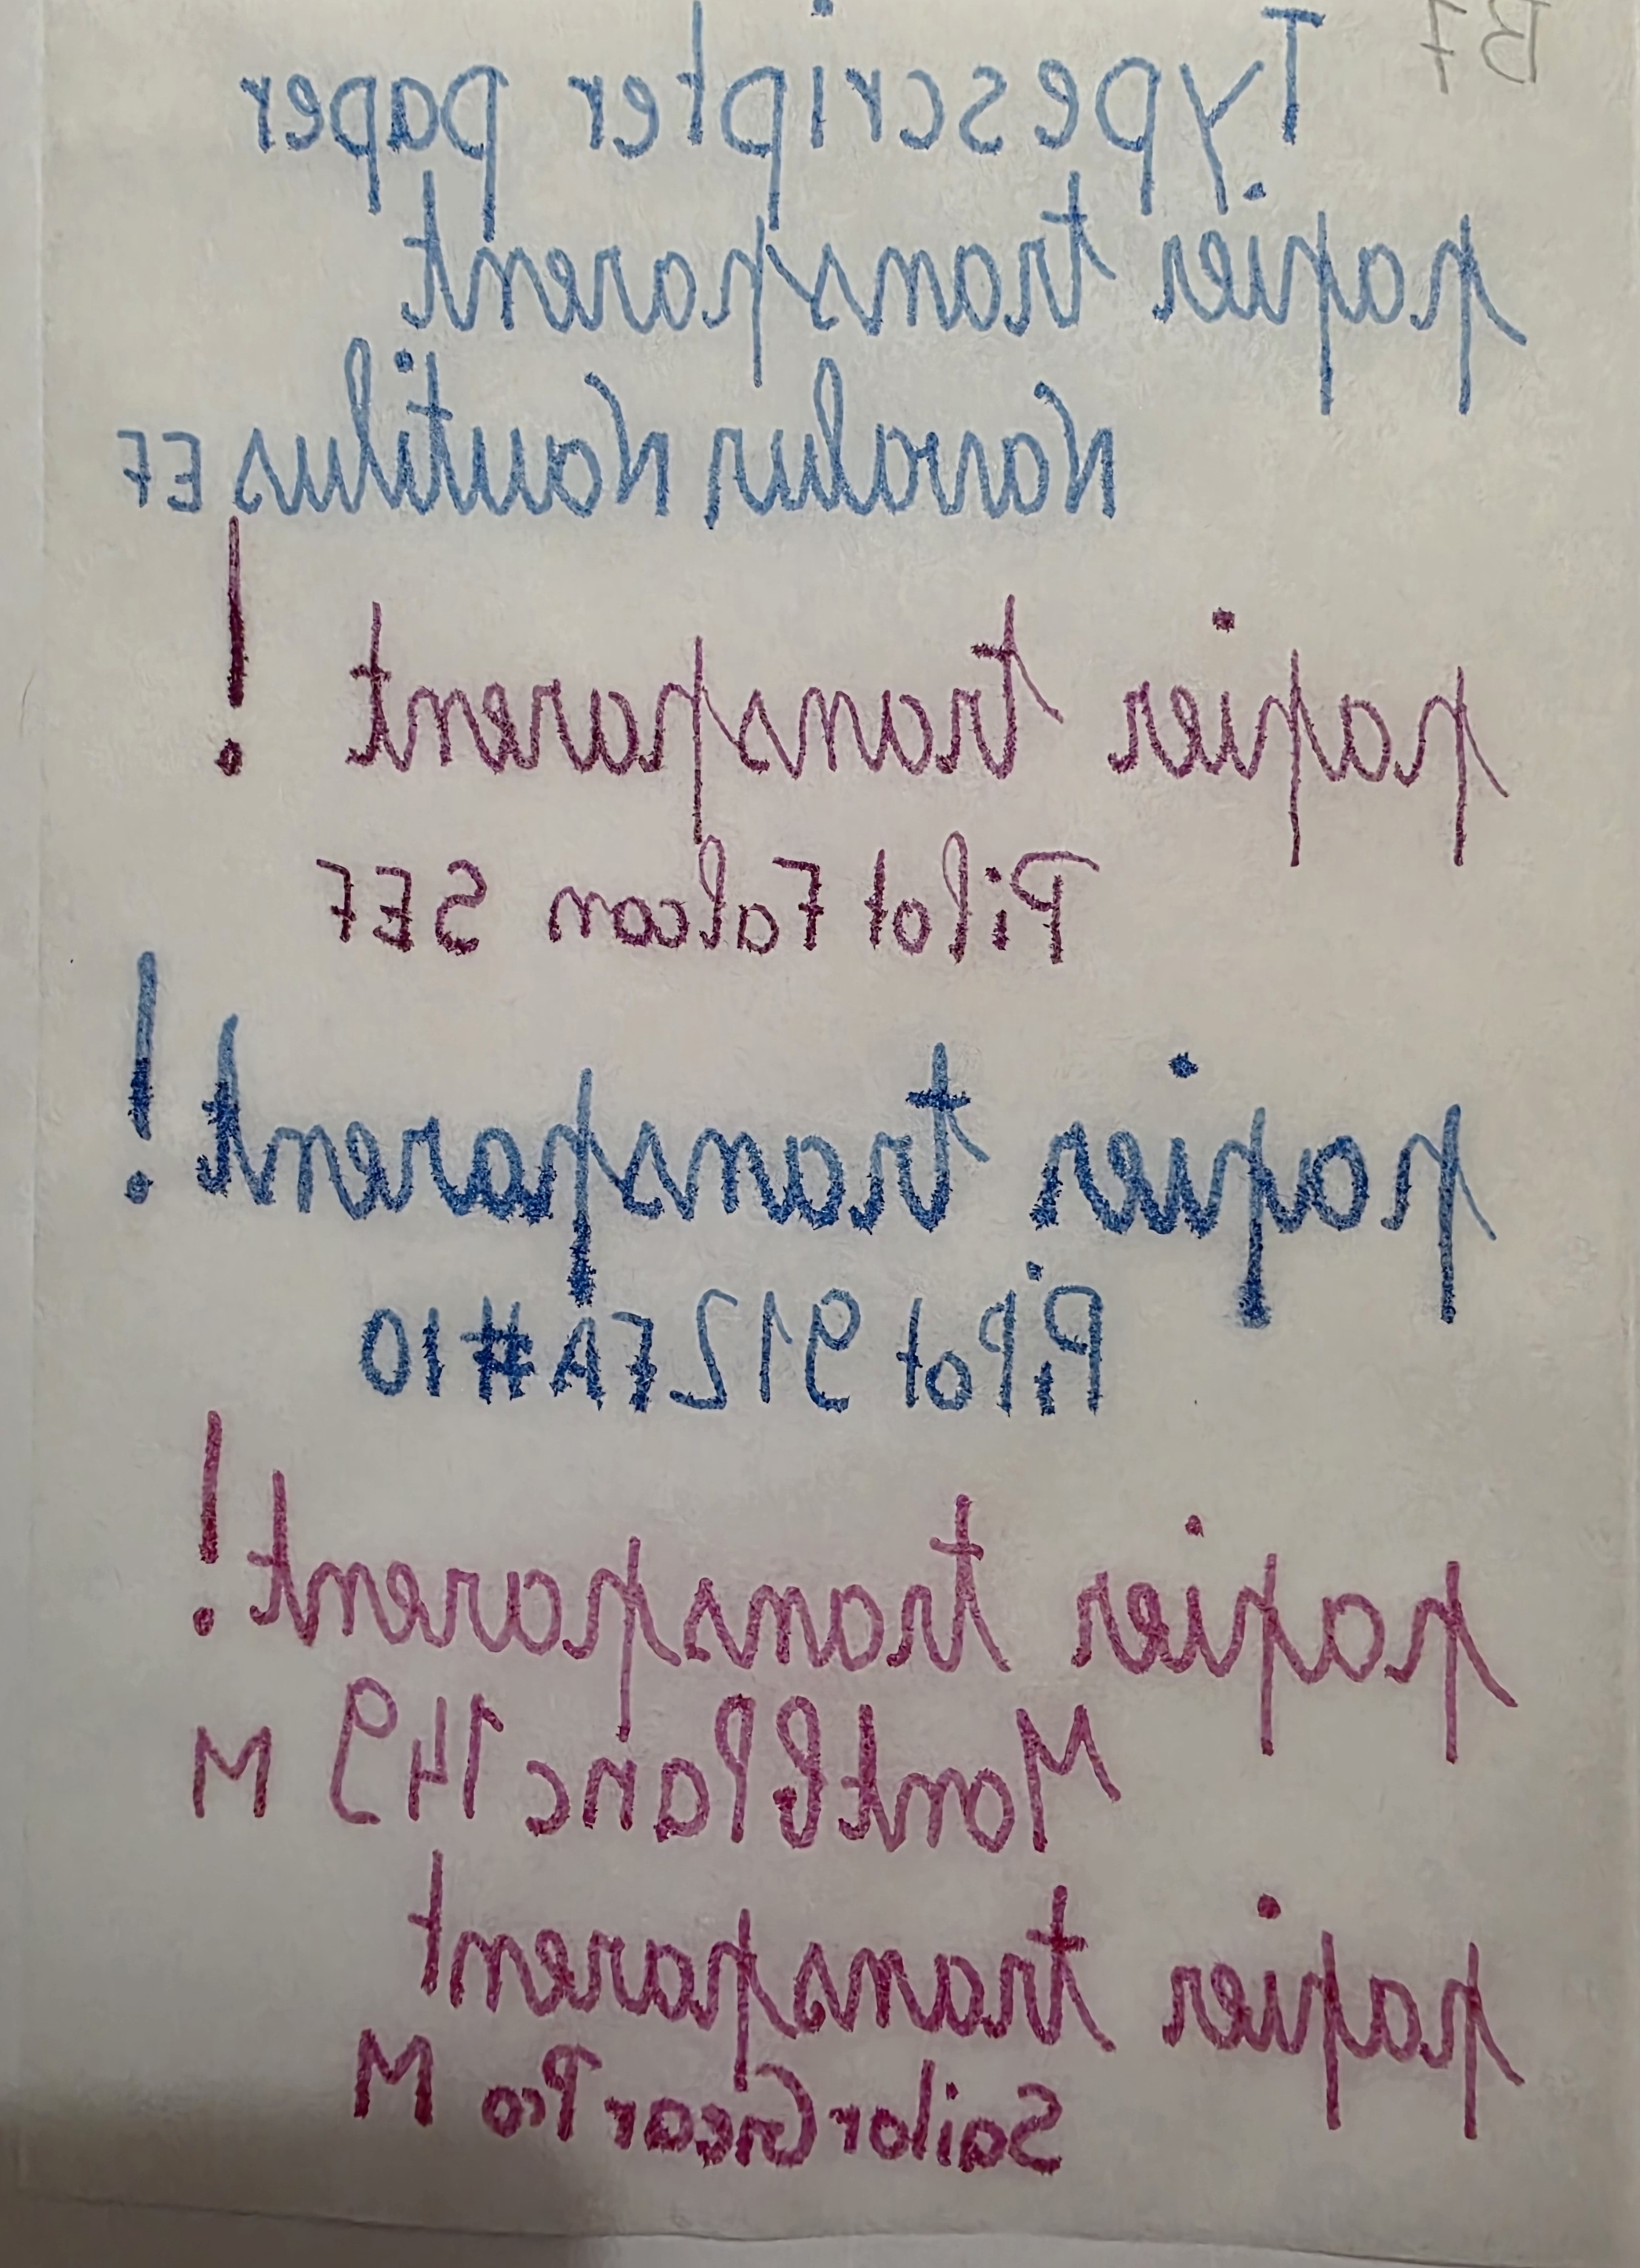 B7
Typescripter paper
papier transparent
Navalur Nautilus EF
papier transparent !
Pilot Falcon SEF
papier transparent !
Pilot 912 FA #10
papier transparent !
MontBlanc 149 M
papier transparent
Sailor Grear Pro M